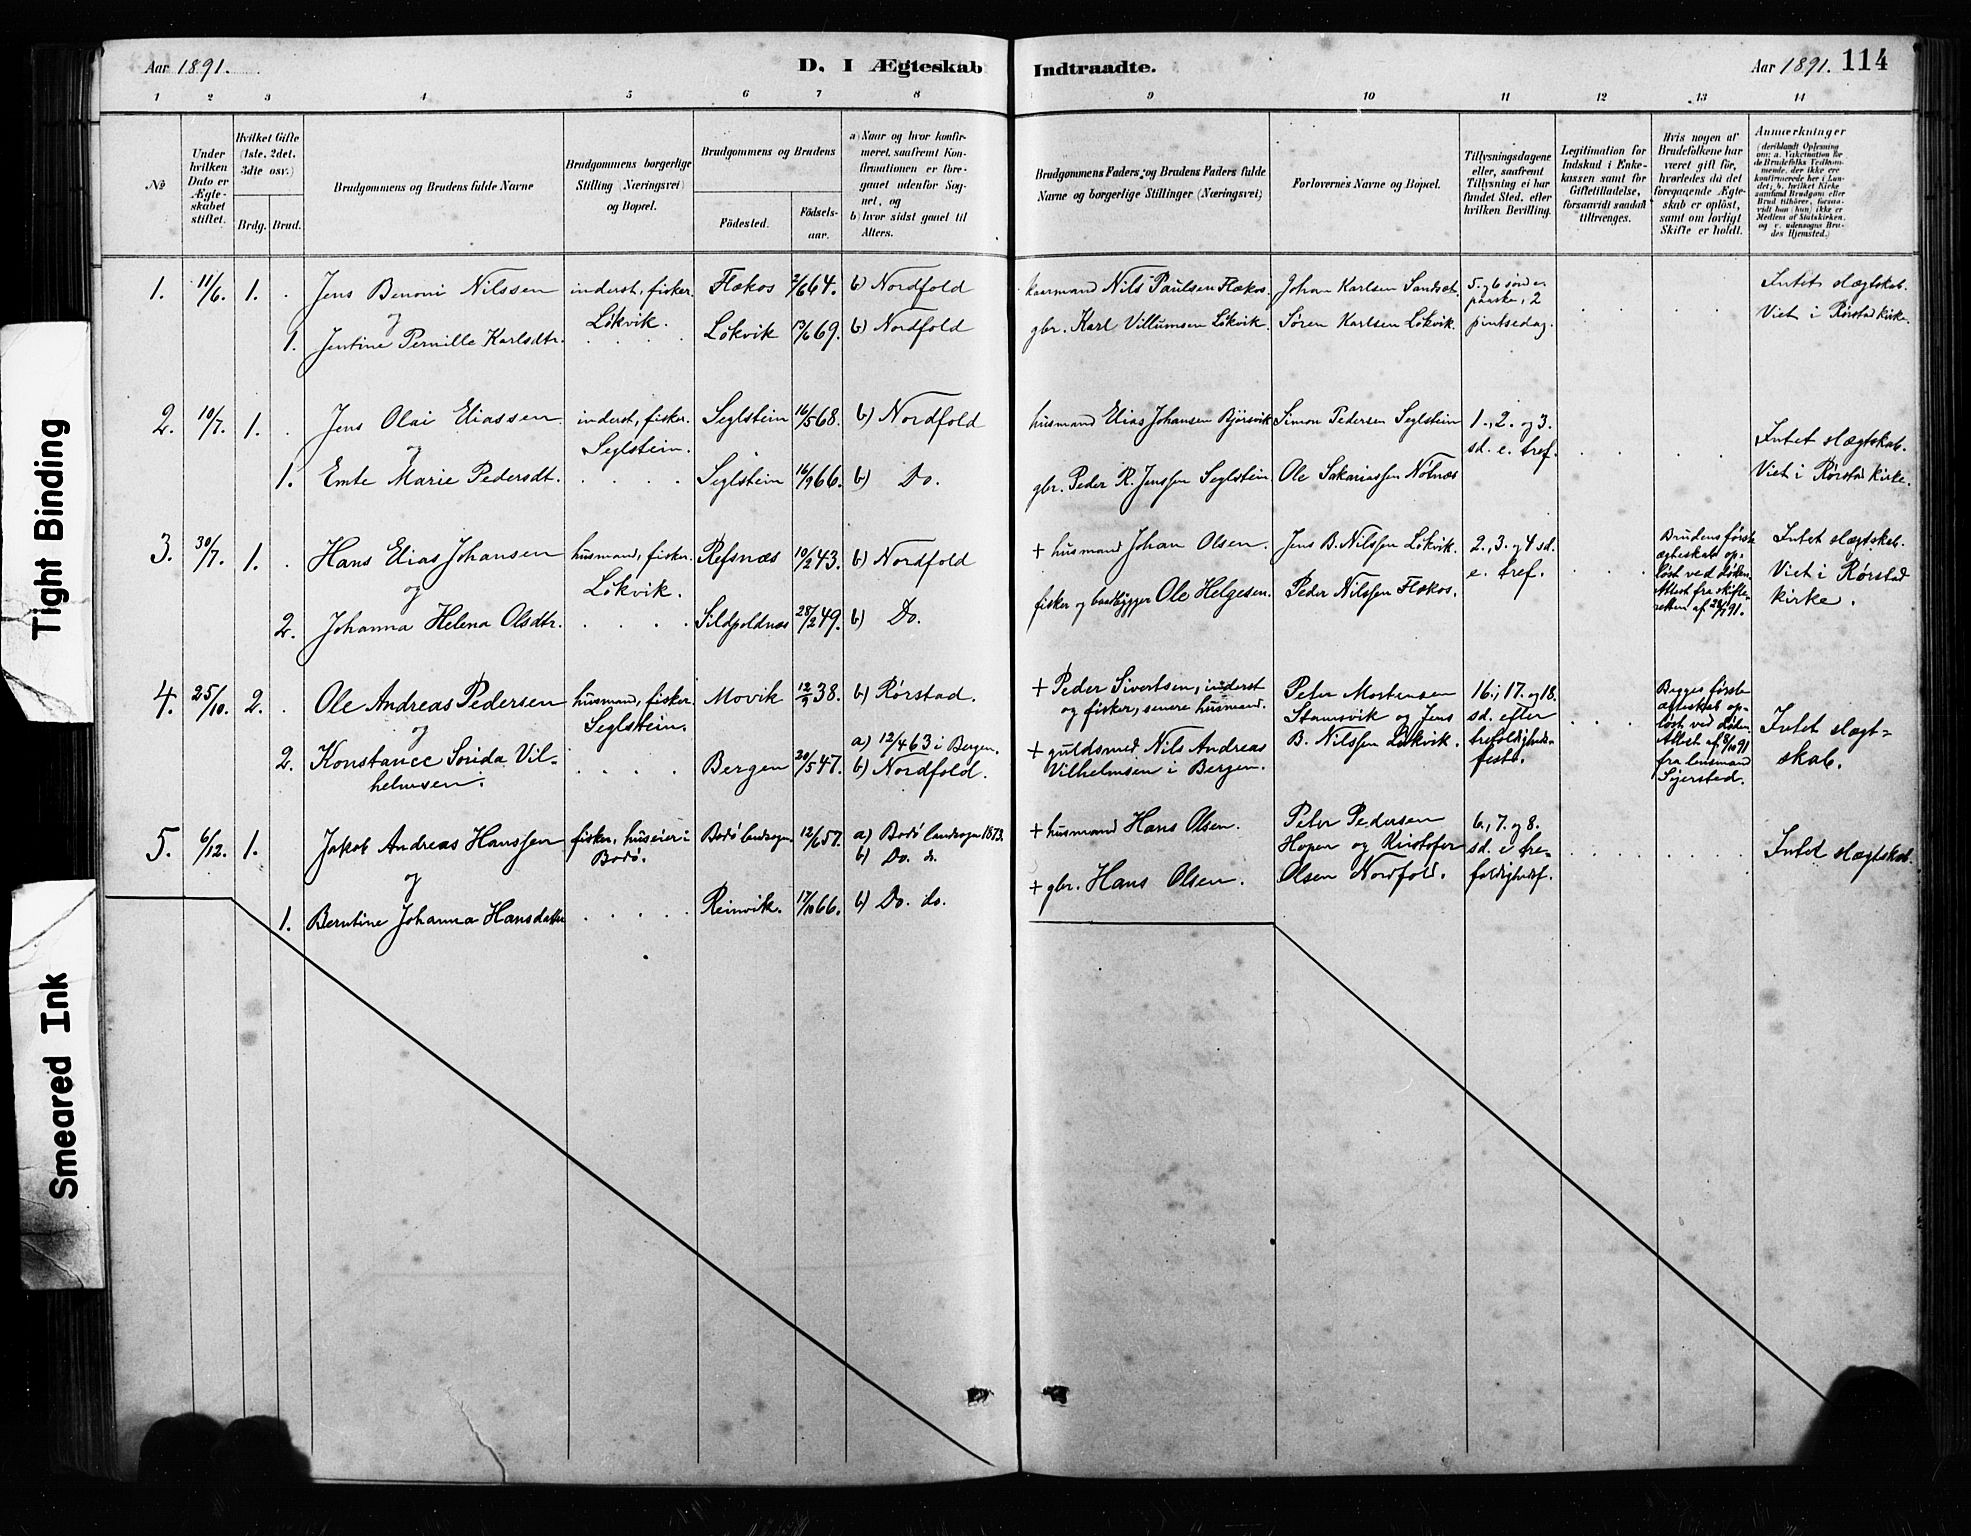 Aar 1891.
D. I Ægteskab
Indtraadte.
Aar 1891. 114
1 2 3 4 5 6 7 8
9 10 11 12 13 14
№
Under hvilken Dato er Ægteskabet stiftet.
Hvilket Gifte (1ste, 2det, 3dte osv.)
Brdg. Brud.
Brudgommens og Brudens fulde Navne
Brudgommens borgerlige Stilling (Næringsvei) og Bopæl.
Brudgommens og Brudens
Fødested.
Fødselsaar.
a) Naar og hvor konfirmeret, saafremt Konfirmationen er foregaaet udenfor Sognet, og
b) hvor sidst gaaet til Alters.
Brudgommens Faders og Brudens Faders fulde Navne og borgerlige Stillinger (Næringsvei)
Forlovernes Navne og Bopæl.
Tillysningsdagene eller, saafremt Tillysning ei har fundet Sted, efter hvilken Bevilling.
Legitimation for Indskud i Enkekassen samt for Giftetilladelse, forsaavidt saadan tiltrænges.
Hvis nogen af Brudefolkene har været gift før, hvorledes da det foregaaende Ægteskab er opløst, samt om lovligt Skifte er holdt.
Anmærkninger
(deriblandt Oplysning om: a. Vakcination for de Brudefolks Vedkommende, der ikke ere konfirmerede her i Landet; b. hvilket Kirkesamfund Brudgom eller Brud tilhører, forsaavidt han (hun) ikke er Medlem af Statskirken, og c. udensogns Brudes Hjemsted.)
1. 11/6. 1. Jens Benoni Nilssen inderst, fisker. Flækos 2/6 64. b) Nordfold
og Løkvik.
1. Jentine Pernille Karlsdtr. Løkvik 13/6 69. b) Nordfold
kaarmand Nils Paulsen Flækos. Johan Karlsen Sandset. 5. og 6 sønd e. paaske, 2 pintsedag. Intet slægtskab.
gbr. Karl Villumsen Løkvik. Søren Karlsen Løkvik. Viet i Rørstad kirke.
2. 10/7. 1. Jens Olai Eliassen inderst, fisker. Seglstein 16/5 68. b) Nordfold
og Seglstein.
1. Emte Marie Pedersdt. Seglstein 16/9 66. b) Do.
husmand Elias Johansen Bjørsvik Simon Pedersen Seglstein 1., 2. og 3. sd. e. tref. Intet slægtskab.
gbr. Peder R. Jenssen Seglstein. Ole Sakariassen Nøtnæs Viet i Rørstad kirke.
3. 30/7. 1. Hans Elias Johansen husmand, fisker. Refsnæs 10/2 43. b) Nordfold
og Løkvik.
2. Johanna Helena Olsdtr. Sildpoldnæs 28/2 49. b) Do.
+ husmand Johan Olsen. Jens B. Nilssen Løkvik. 2., 3. og 4 sd. e. tref.
fisker og baadbygger Ole Helgesen. Peder Nilssen Flækos.
Brudens første ægteskab opløst ved døden. Attest fra skifteretten af 28/7 91.
Intet slægtskab. Viet i Rørstad kirke.
4. 25/10. 2. Ole Andreas Pedersen husmand, fisker Movik 12/9 38. b) Rørstad.
og Seglstein.
2. Konstance Sorida Vilhelmsen. Bergen 20/5 47. a) 12/4 63 i Bergen. b) Nordfold.
+ Peder Sivertsen, inderst og fisker, senere husmand.
+ guldsmed Nils Andreas Vilhelmsen i Bergen.
Peter Mortensen Stamsvik og Jens B. Nilssen Løkvik.
16., 17. og 18. sd. efter trefoldighedsfest.
Begges første ægteskab opløst ved døden. Attest af 8/10 91 fra lensmand Sjersted.
Intet slægtskab.
5. 6/12. 1. Jakob Andreas Hanssen fisker, huseier i Bodø. Bodø landsogn. 12/6 57. a) Bodø landsogn 1873. b) Do. do.
og
1. Berntine Johanna Hansdatter Reinvik. 17/10 66. b) Do. do.
+ husmand Hans Olsen.
+ gbr. Hans Olsen.
Peter Pedersen Hopen og Kristofer Olsen Nordfold.
6., 7. og 8. sd. e. trefoldighedsf.
Intet slægtskab.
Tight Binding
Smeared Ink